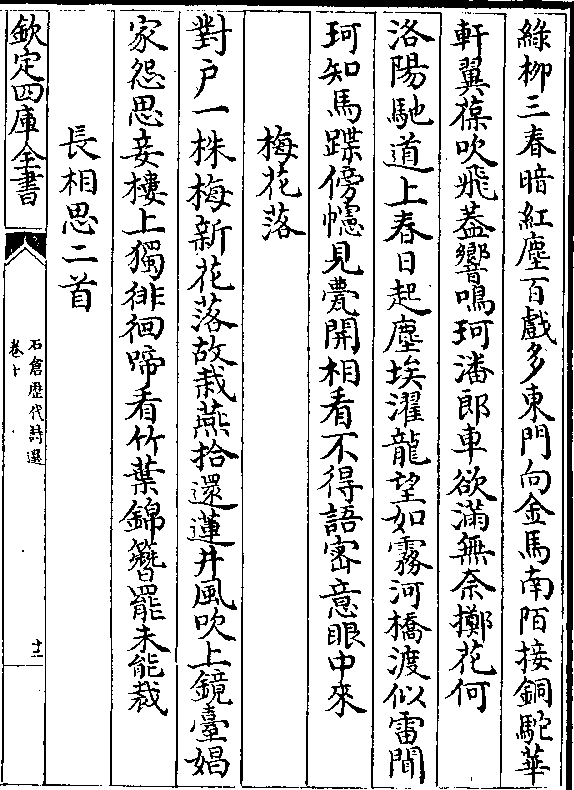 綠栁三春暗紅塵百戲多東門向金馬南陌接銅駝華
軒翼葆吹飛葢響鳴珂潘郎車欲滿無奈擲花何
洛陽馳道上春日起塵埃濯龍望如霧河橋渡似雷聞
珂知馬蹀傍幰見甍開相看不得語密意眼中來
梅花落
對户一株梅新花落故栽燕拾還蓮井風吹上鏡臺娼
家怨思妾樓上獨徘徊啼看竹葉錦簪罷未能裁
長相思二首
欽定四庫全書
石倉歷代詩選
卷十
十二